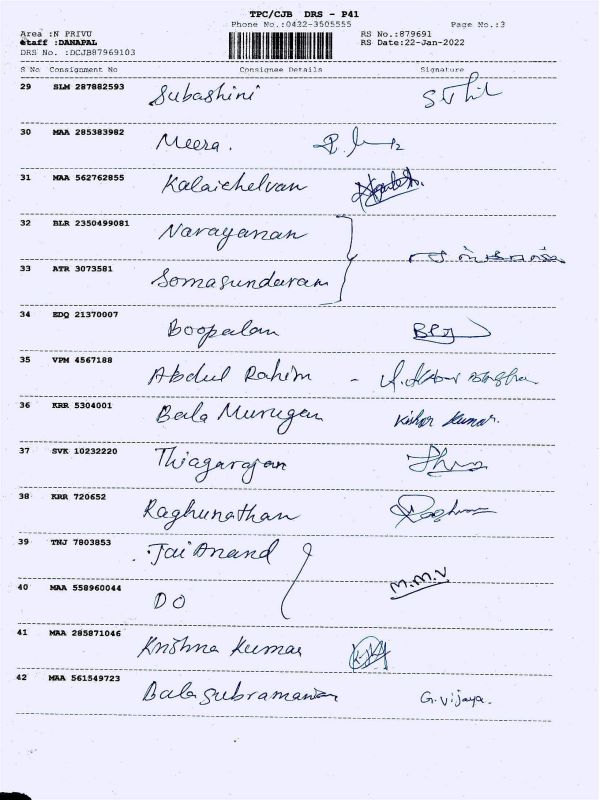 TPC/CJB DRS - P41
Phone No.:0422-3505555 Page No.:3
Area :N PRIVU RS No.:879691
Staff :DANAPAL RS Date:22-Jan-2022
DRS No. :DCJB87969103
S No Consignment No Consignee Details Signature
29 SLM 287882593 Subashini
30 MAA 285383982 Meera.
31 MAA 562762855 Kalaichelvan
32 BLR 2350499081 Narayanan
33 ATR 3073581 Somasundaram
34 EDQ 21370007 Boopalan
35 VPM 4567188 Abdul Rahim -
36 KRR 5304001 Bala Murugan Kishor Kumar.
37 SVK 10232220 Thiagarajan
38 KRR 720652 Raghunathan
39 TNJ 7803853 Jai Anand
40 MAA 558960044 DO M.M.V
41 MAA 285871046 Krishna Kumar
42 MAA 561549723 Balasubramanian G.Vijaya.